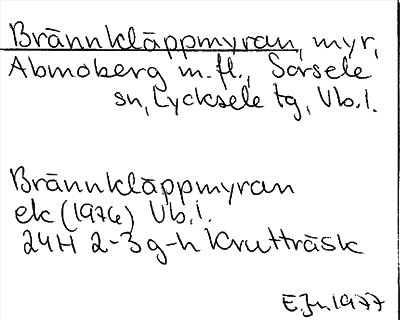 Brännkläppmyran, myr,
Abmoberg m.fl., Sorsele
sn, Lycksele tg, Vb.l.
Brännkläppmyran
ek (1976) Vb.l.
24H 2-3 g-h Kruttträsk
E.Jn.1977